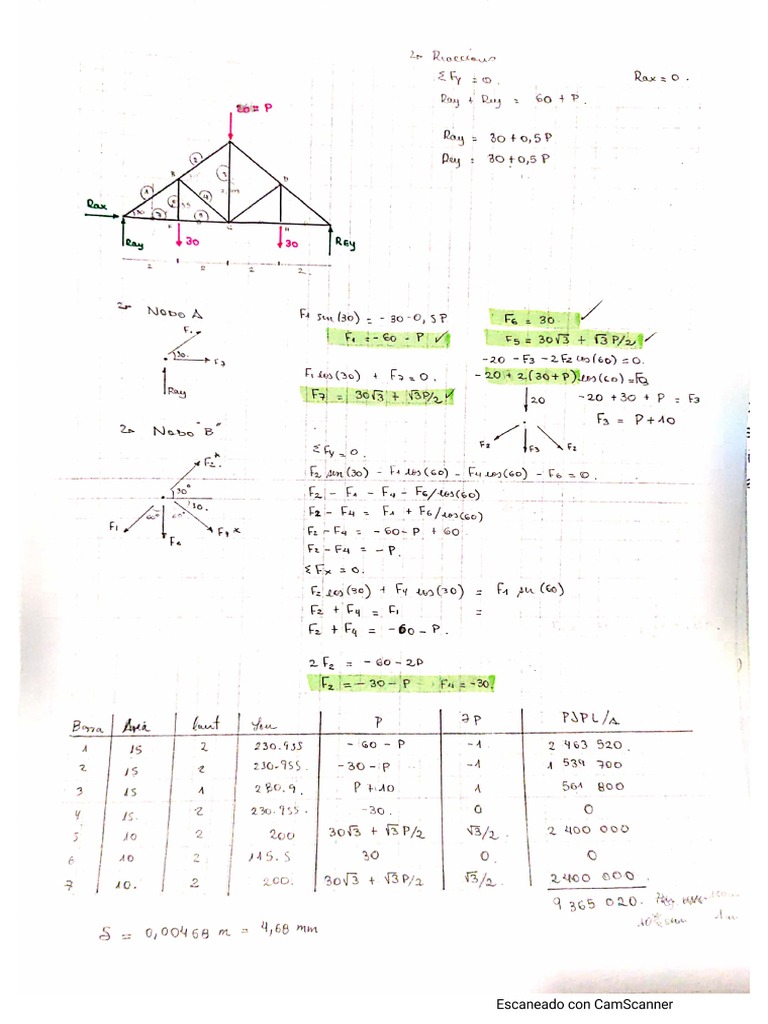 2- Reacciones
ΣFy = 0.
Rax = 0.
Ray + Rey = 60 + P.
Ray = 30 + 0,5 P
Rey = 30 + 0,5 P
20 = P
Rax
Ray
30
30
REy
B
D
1
2
3
4
5
6
7
30
2
2
2
2
2- Nodo A
F1
30.
F7
Ray
F1 sen(30) = -30-0,5P
F1 = -60 - P ✓
F1 cos(30) + F7 = 0.
F7 = 30√3 + √3P/2 ✓
F6 = 30 ✓
F5 = 30√3 + √3P/2 ✓
-20 - F3 - 2F2 cos(60) = 0.
-20 + 2.(30+P).cos(60) = F3
-20 + 30 + P = F3
F3 = P + 10
20
F2
F3
F2
2- Nodo "B"
F2*
30°
30.
60°
60°
F1
F6
F4*
ΣFy = 0.
F2 sen(30) - F1 cos(60) - F4 cos(60) - F6 = 0.
F2 - F1 - F4 - F6/cos(60)
F2 - F4 = F1 + F6/cos(60)
F2 - F4 = -60-P + 60
F2 - F4 = -P.
ΣFx = 0.
F2 cos(30) + F4 cos(30) = F1 sen(60)
F2 + F4 = F1 =
F2 + F4 = -60 - P.
2F2 = -60 - 2P
F2 = -30 - P F4 = -30.
Barra Area Cant Lon P ∂P P∂PL/A
1 15 2 230.955 -60 - P -1 2 463 520.
2 15 2 230.955 -30 - P -1 1 539 700
3 15 1 280.9. P + 10 1 561 800
4 15. 2 230.955. -30. 0 0
5 10 2 200 30√3 + √3P/2 √3/2. 2 400 000
6 10 2. 115.5 30 0. 0
7 10. 2 200. 30√3 + √3P/2 √3/2. 2 400 000.
9 365 020.
δ = 0,00468 m = 4,68 mm
Escaneado con CamScanner